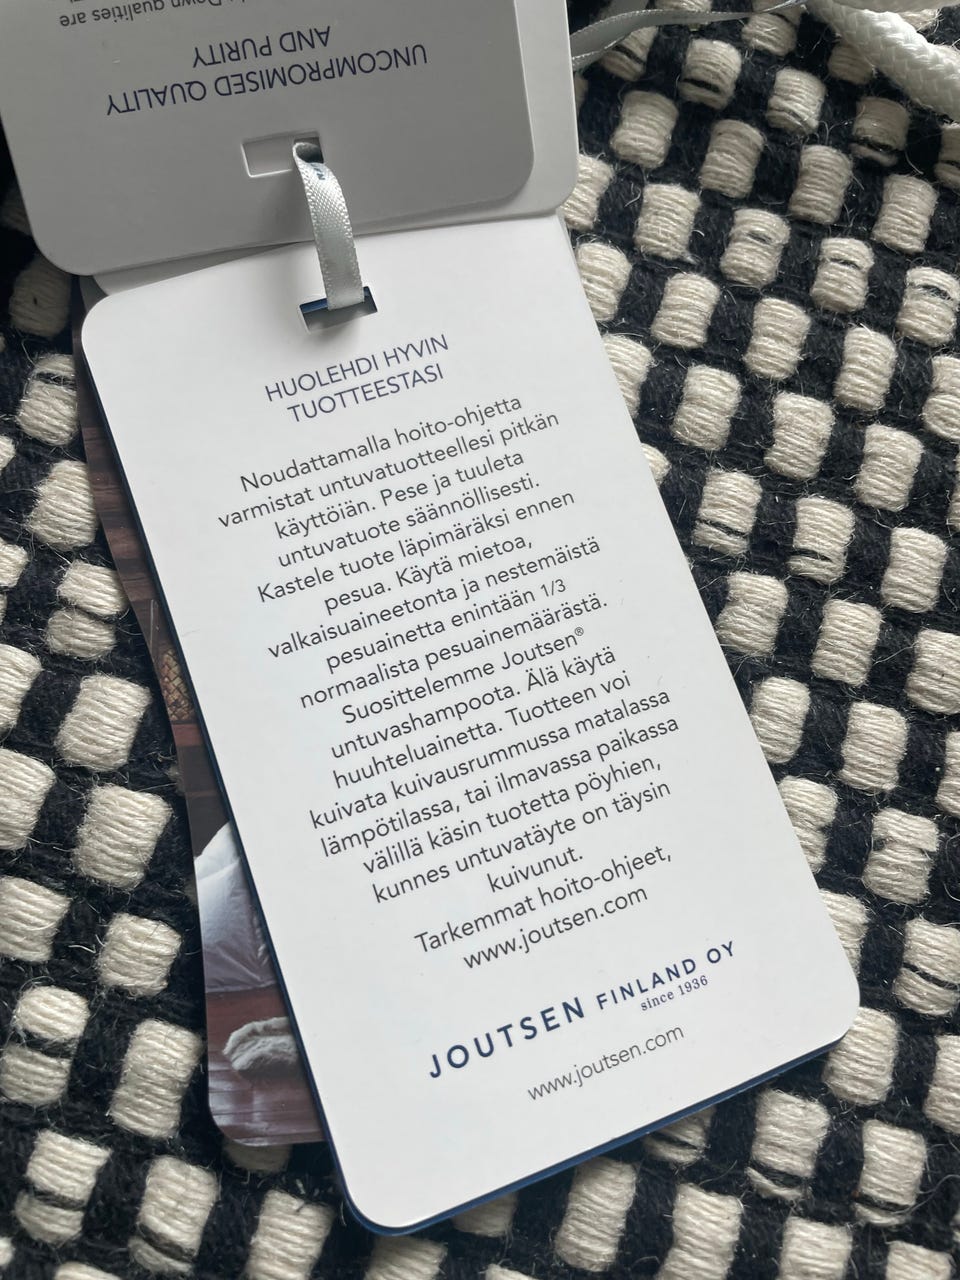 Down qualities are
UNCOMPROMISED QUALITY
AND PURITY
HUOLEHDI HYVIN
TUOTTEESTASI
Noudattamalla hoito-ohjetta
varmistat untuvatuotteellesi pitkän
käyttöiän. Pese ja tuuleta
untuvatuote säännöllisesti.
Kastele tuote läpimäräksi ennen
pesua. Käytä mietoa,
valkaisuaineetonta ja nestemäistä
pesuainetta enintään 1/3
normaalista pesuainemäärästä.
Suosittelemme Joutsen®
untuvashampoota. Älä käytä
huuhteluainetta. Tuotteen voi
kuivata kuivausrummussa matalassa
lämpötilassa, tai ilmavassa paikassa
välillä käsin tuotetta pöyhien,
kunnes untuvatäyte on täysin
kuivunut.
Tarkemmat hoito-ohjeet,
www.joutsen.com
JOUTSEN FINLAND OY
since 1936
www.joutsen.com